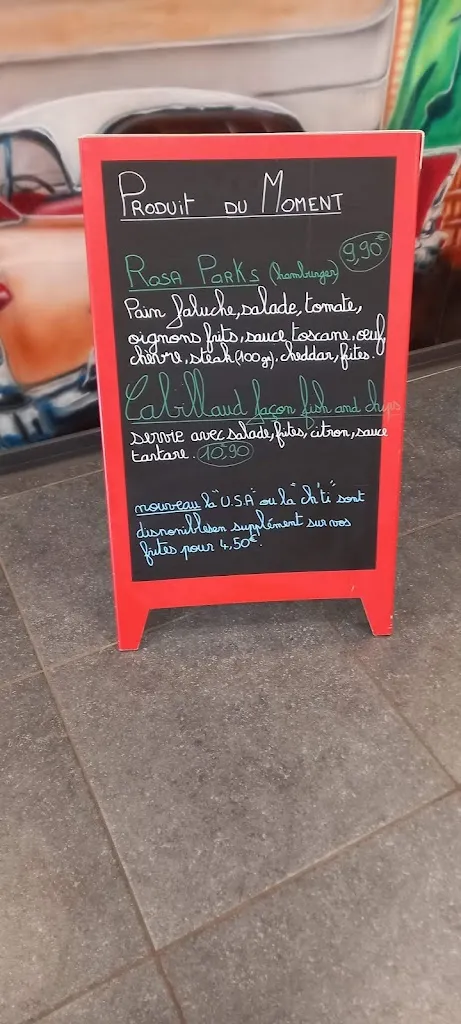 PRODUIT DU MOMENT
9,90€
ROSA PARKS (hamburger)
Pain faluche, salade, tomate,
oignons frits, sauce toscane, oeuf,
chèvre, steak (100gr), cheddar, frites.
Cabillaud façon fish and chips
servie avec salade, frites, citron, sauce
tartare. 10,90
nouveau la "U.S.A" ou la "ch'ti" sont
disponiblesen supplément sur vos
frites pour 4,50€.